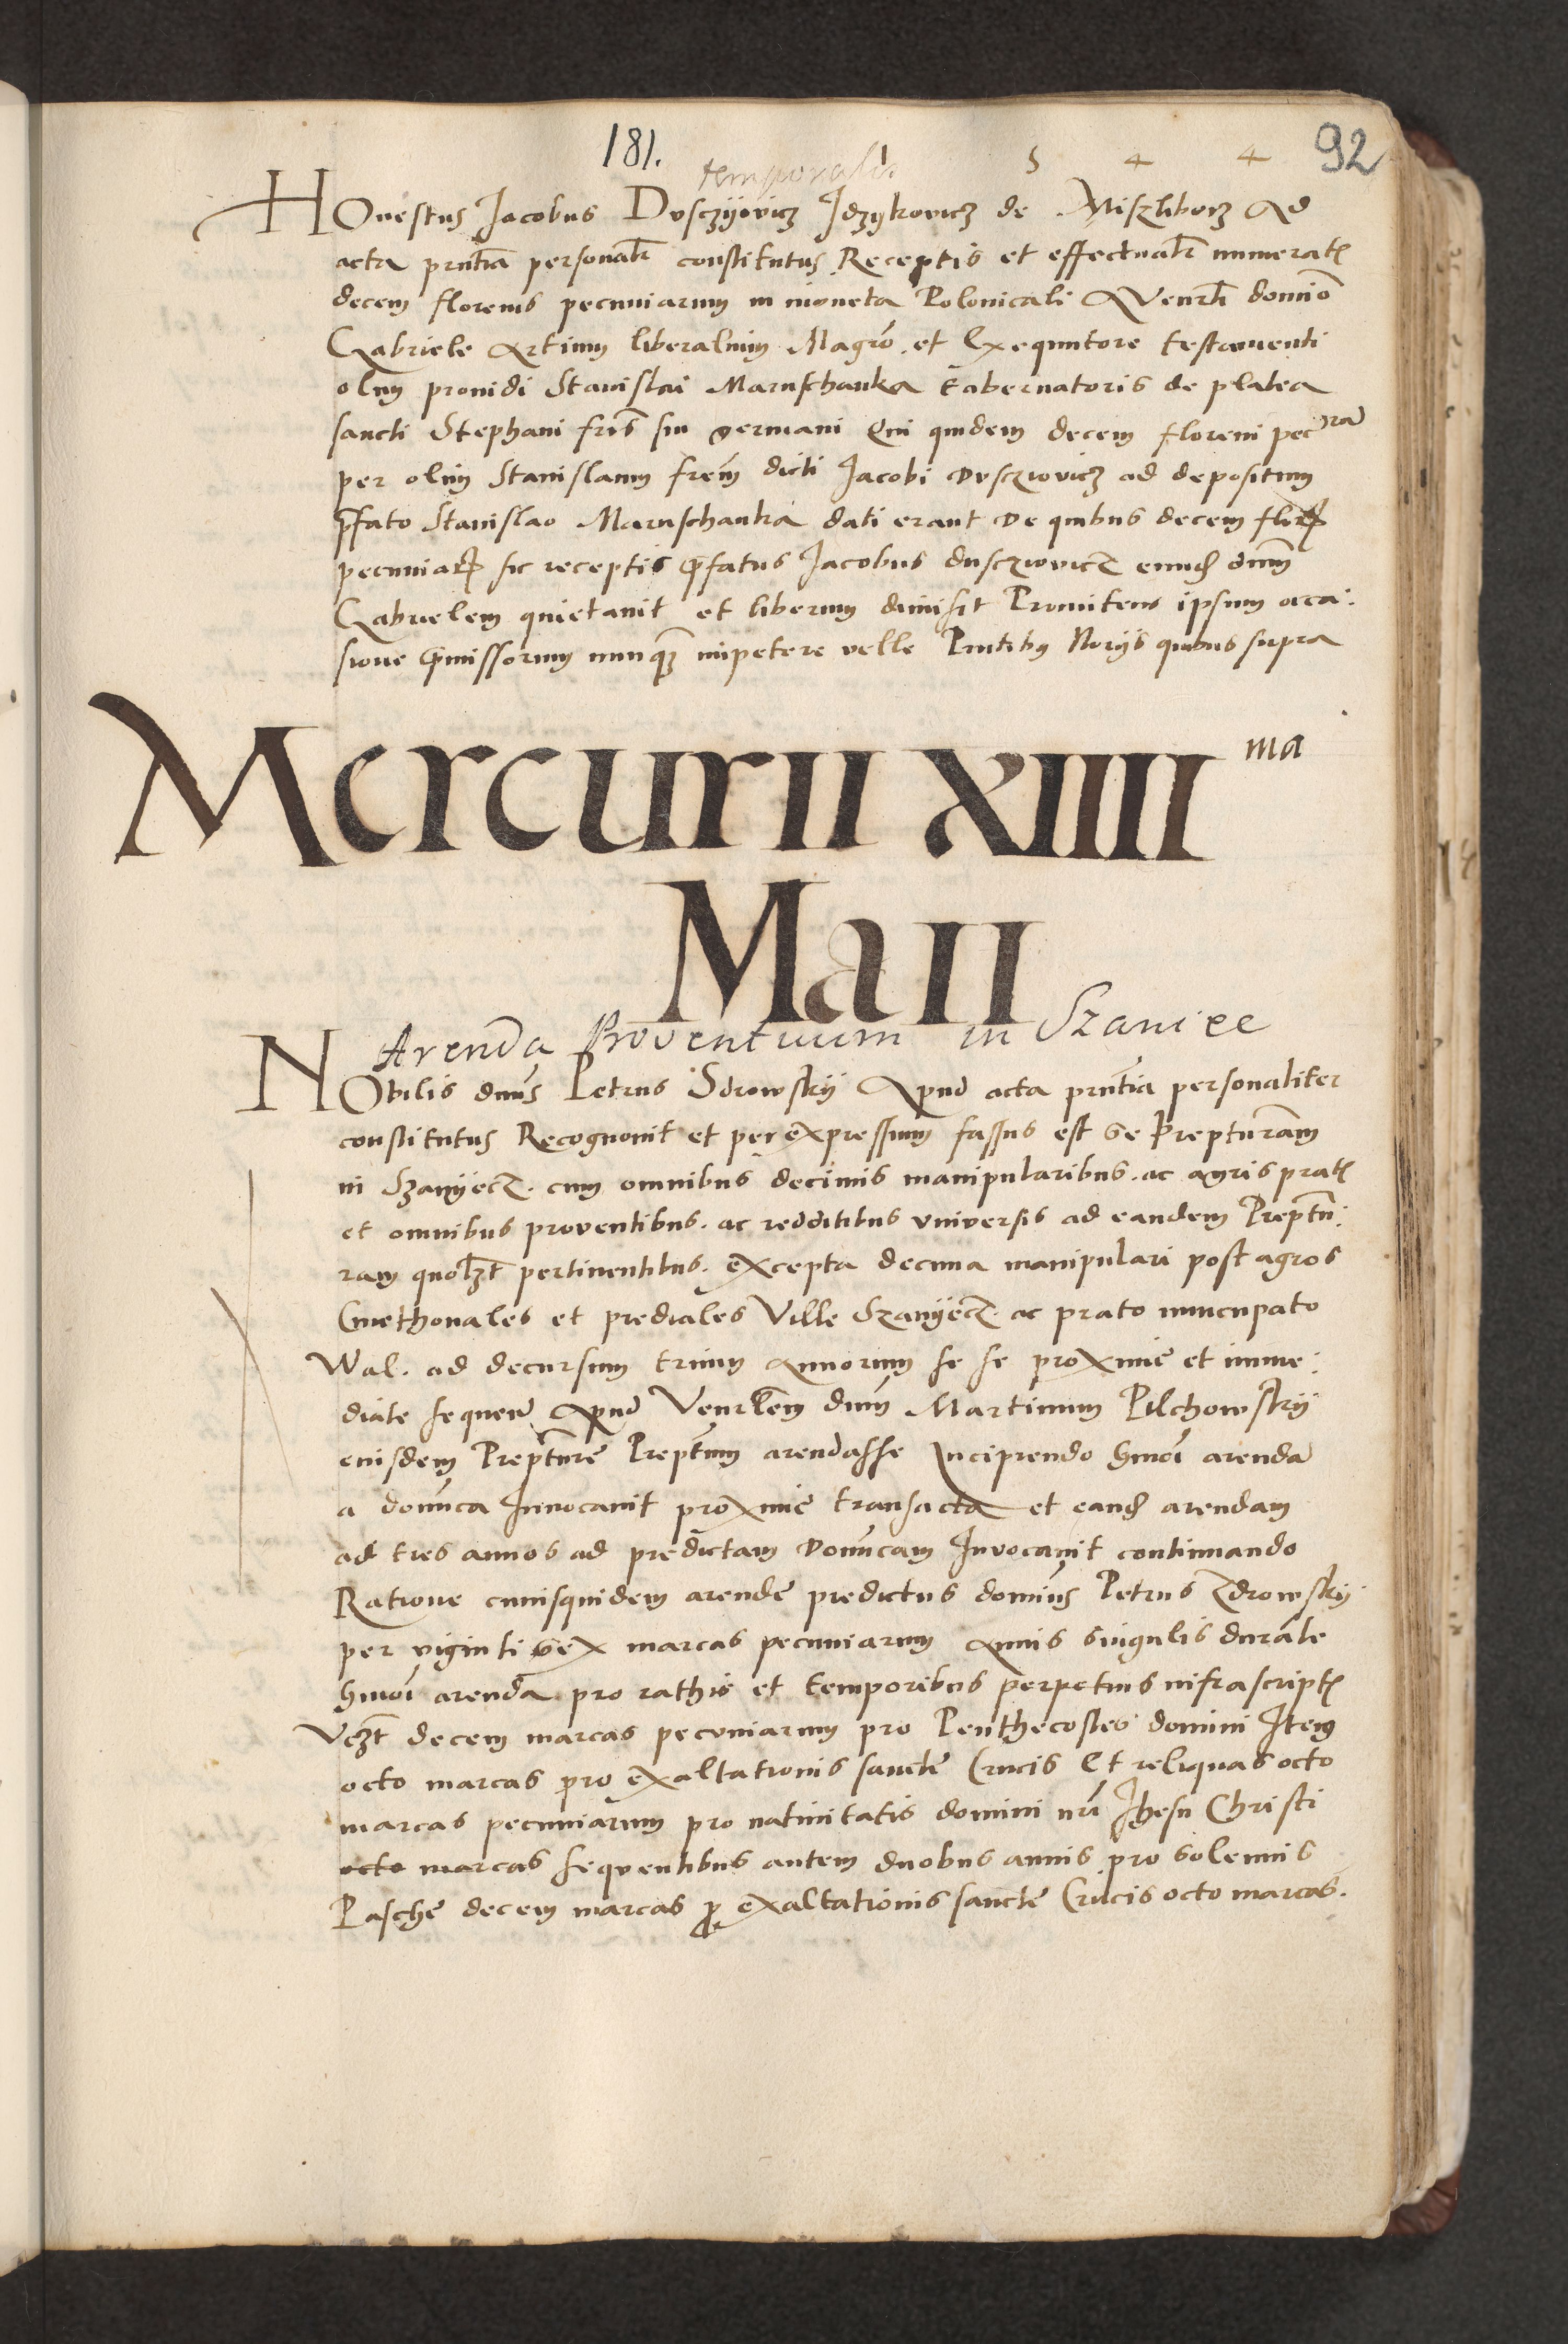 181.
temporalis
5 4 4
92
HOnestus Jacobus Dvsczÿovicz Jdzykowicz de Miszliborz Ad
acta pñtia personalr constitutus Receptis et effectualr numeratis
decem florenis pecuniarum in moneta Polonicali A Venrli domino
Gabriele Artium liberalium Magro et Exequutore testamenti
olim prouidi Stanislai Maruschanka tabernatoris de platea
sancti Stephani fris sui germani Qui quidem decem floreni pecra
per olim Stanislaum frem dicti Jacobi Dvsczÿovicz ad depositum
pfato Stanislao Maruschanka dati erant De quibus decem flor
pecuniar sic receptis pfatus Jacobus dusczÿovicz eund dnm
Gabrielem quietauit et liberum dimisit Promitens ipsum occa:
sione pmissorum nunq impetere velle Pntibus Norijs quibus supra
Mercurii XIIII ma
Maii
Arenda Proventuum in Szaniec
NObilis dnus Petrus Sdrowskij Apud acta pñtia personaliter
constitutus Recognouit et per expressum fassus est se Prepturam
in Szanÿecz. cum omnibus decimis manipularibus. ac agris pratis
et omnibus proventibus. ac redditibus vniversis ad eandem Preptu:
ram quolzt pertinentibus. excepta decima manipulari post agros
Cmethonales et prediales Ville Szanÿecz. ac prato nuncupato
Wal. ad decursum trium Annorum se se proxime et imme:
diate sequen Apud Venrlem dnm Martinum Pilchowskij
eiusdem Prepture Preptum arendasse Incipiendo hmoi arenda
a donica Invocauit proxime transacta et eand arendam
ad tres annos ad predictam Donicam Invocauit continuando
Ratione cuiusquidem arende predictus dominus Petrus Zdrowskij
per viginti sex marcas pecuniarum Annis singulis durate
hmoi arenda pro rathis et temporibus perpetuis infrascriptis
Vczt decem marcas pecuniarum pro Penthecostes domini Item
octo marcas pro exaltationis sancte Crucis Et reliquas octo
marcas pecuniarum pro natiuitatis domini nri Jhesu Christi
octo marcas sequentibus autem duobus annis pro solemnis
Pasche decem marcas p exaltationis sancte Crucis octo marcas.